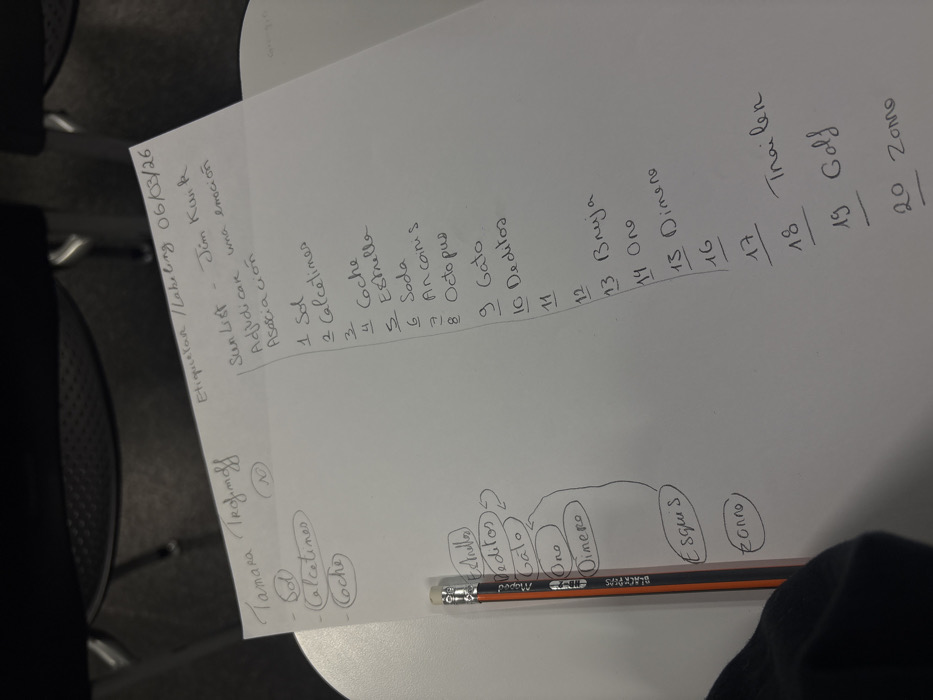 Tamara Trofimoff
Etiquetar / Labeling 06/03/26
Sun List - Jim Kwik
Adjudicar una emoción
Asociación
10
- Sol
- Calcetines
- Coche
Estrella
Deditos
Gato
Oro
Dinero
Esquis
Zorro
1 Sol
2 Calcetines
3
4 Coche
5 Estrella
6 Soda
7 Arcoiris
8 Octopus
9 Gato
10 Deditos
11
12
13 Bruja
14 Oro
15 Dinero
16
17
18 Trailer
19 Golf
20 Zorro
Maped
BLACK'PEPS